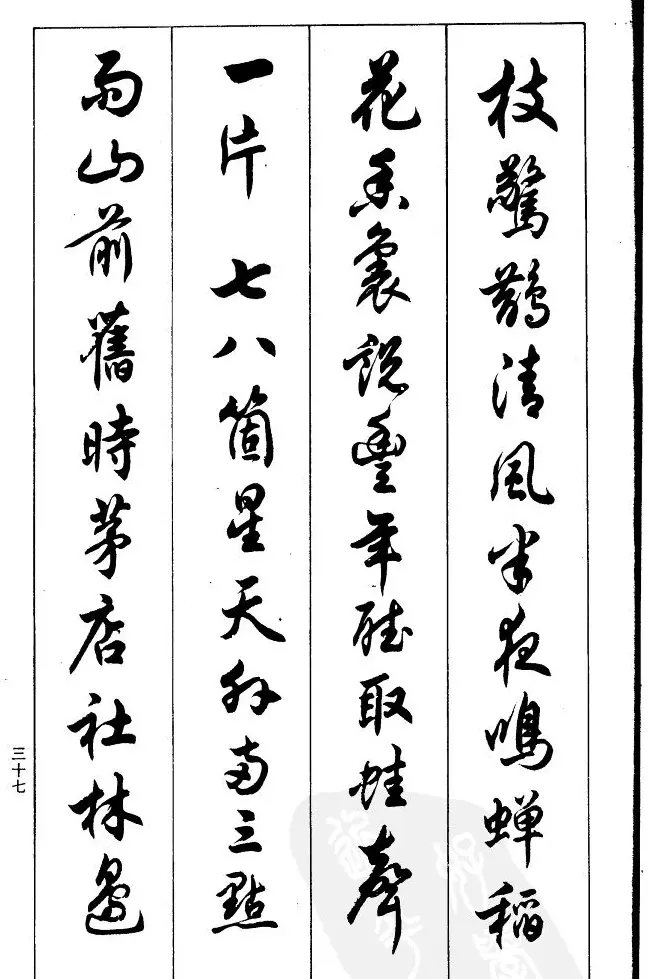 枝驚鵲清風半夜鳴蟬稻
花香裏說豐年聽取蛙聲
一片 七八箇星天外兩三點
雨山前舊時茅店社林邊
三十七